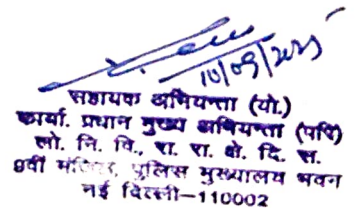 10/09/2025
सहायक अभियन्ता (यो.)
कार्या. प्रधान मुख्य अभियन्ता (परि)
लो. नि. वि., रा. रा. क्षे. दि. स.
8वीं मंजिल, पुलिस मुख्यालय भवन
नई दिल्ली-110002